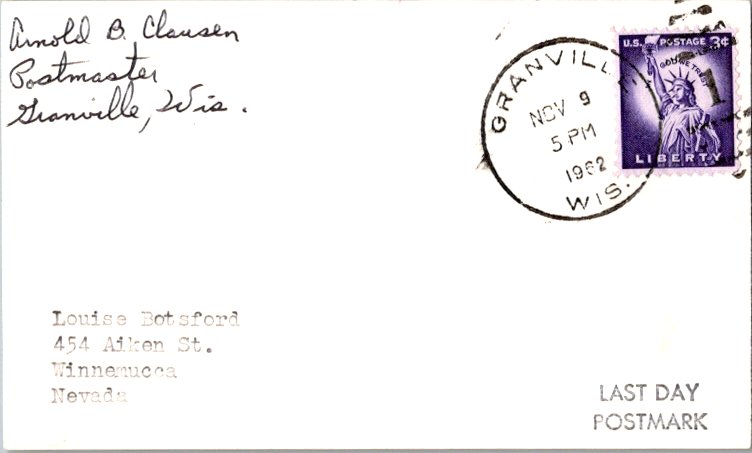 Arnold B. Clausen
Postmaster
Granville, Wis.
GRANVILLE
NOV 9
5 PM
1962
WIS.
U.S. POSTAGE 3¢
IN GOD WE TRUST
LIBERTY
Louise Botsford
454 Aiken St.
Winnemucca
Nevada
LAST DAY
POSTMARK